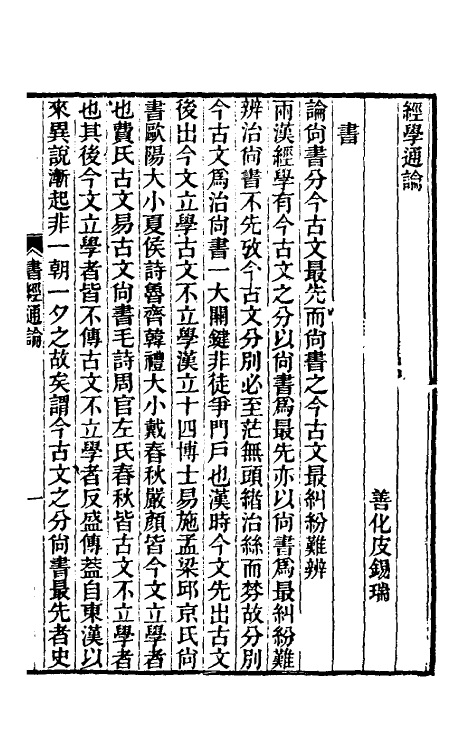 經學通論
善化皮錫瑞
書
論尙書分今古文最先而尙書之今古文最糾紛難辨
兩漢經學有今古文之分以尙書爲最先亦以尙書爲最糾紛難
辨治尙書不先攷今古文分別必至茫無頭緒治絲而棼故分別
今古文爲治尙書一大關鍵非徒爭門戶也漢時今文先出古文
後出今文立學古文不立學漢立十四博士易施孟梁邱京氏尙
書歐陽大小夏侯詩魯齊韓禮大小戴春秋嚴顏皆今文立學者
也費氏古文易古文尙書毛詩周官左氏春秋皆古文不立學者
也其後今文立學者皆不傳古文不立學者反盛傳蓋自東漢以
來異說漸起非一朝一夕之故矣謂今古文之分尙書最先者史
書經通論
一